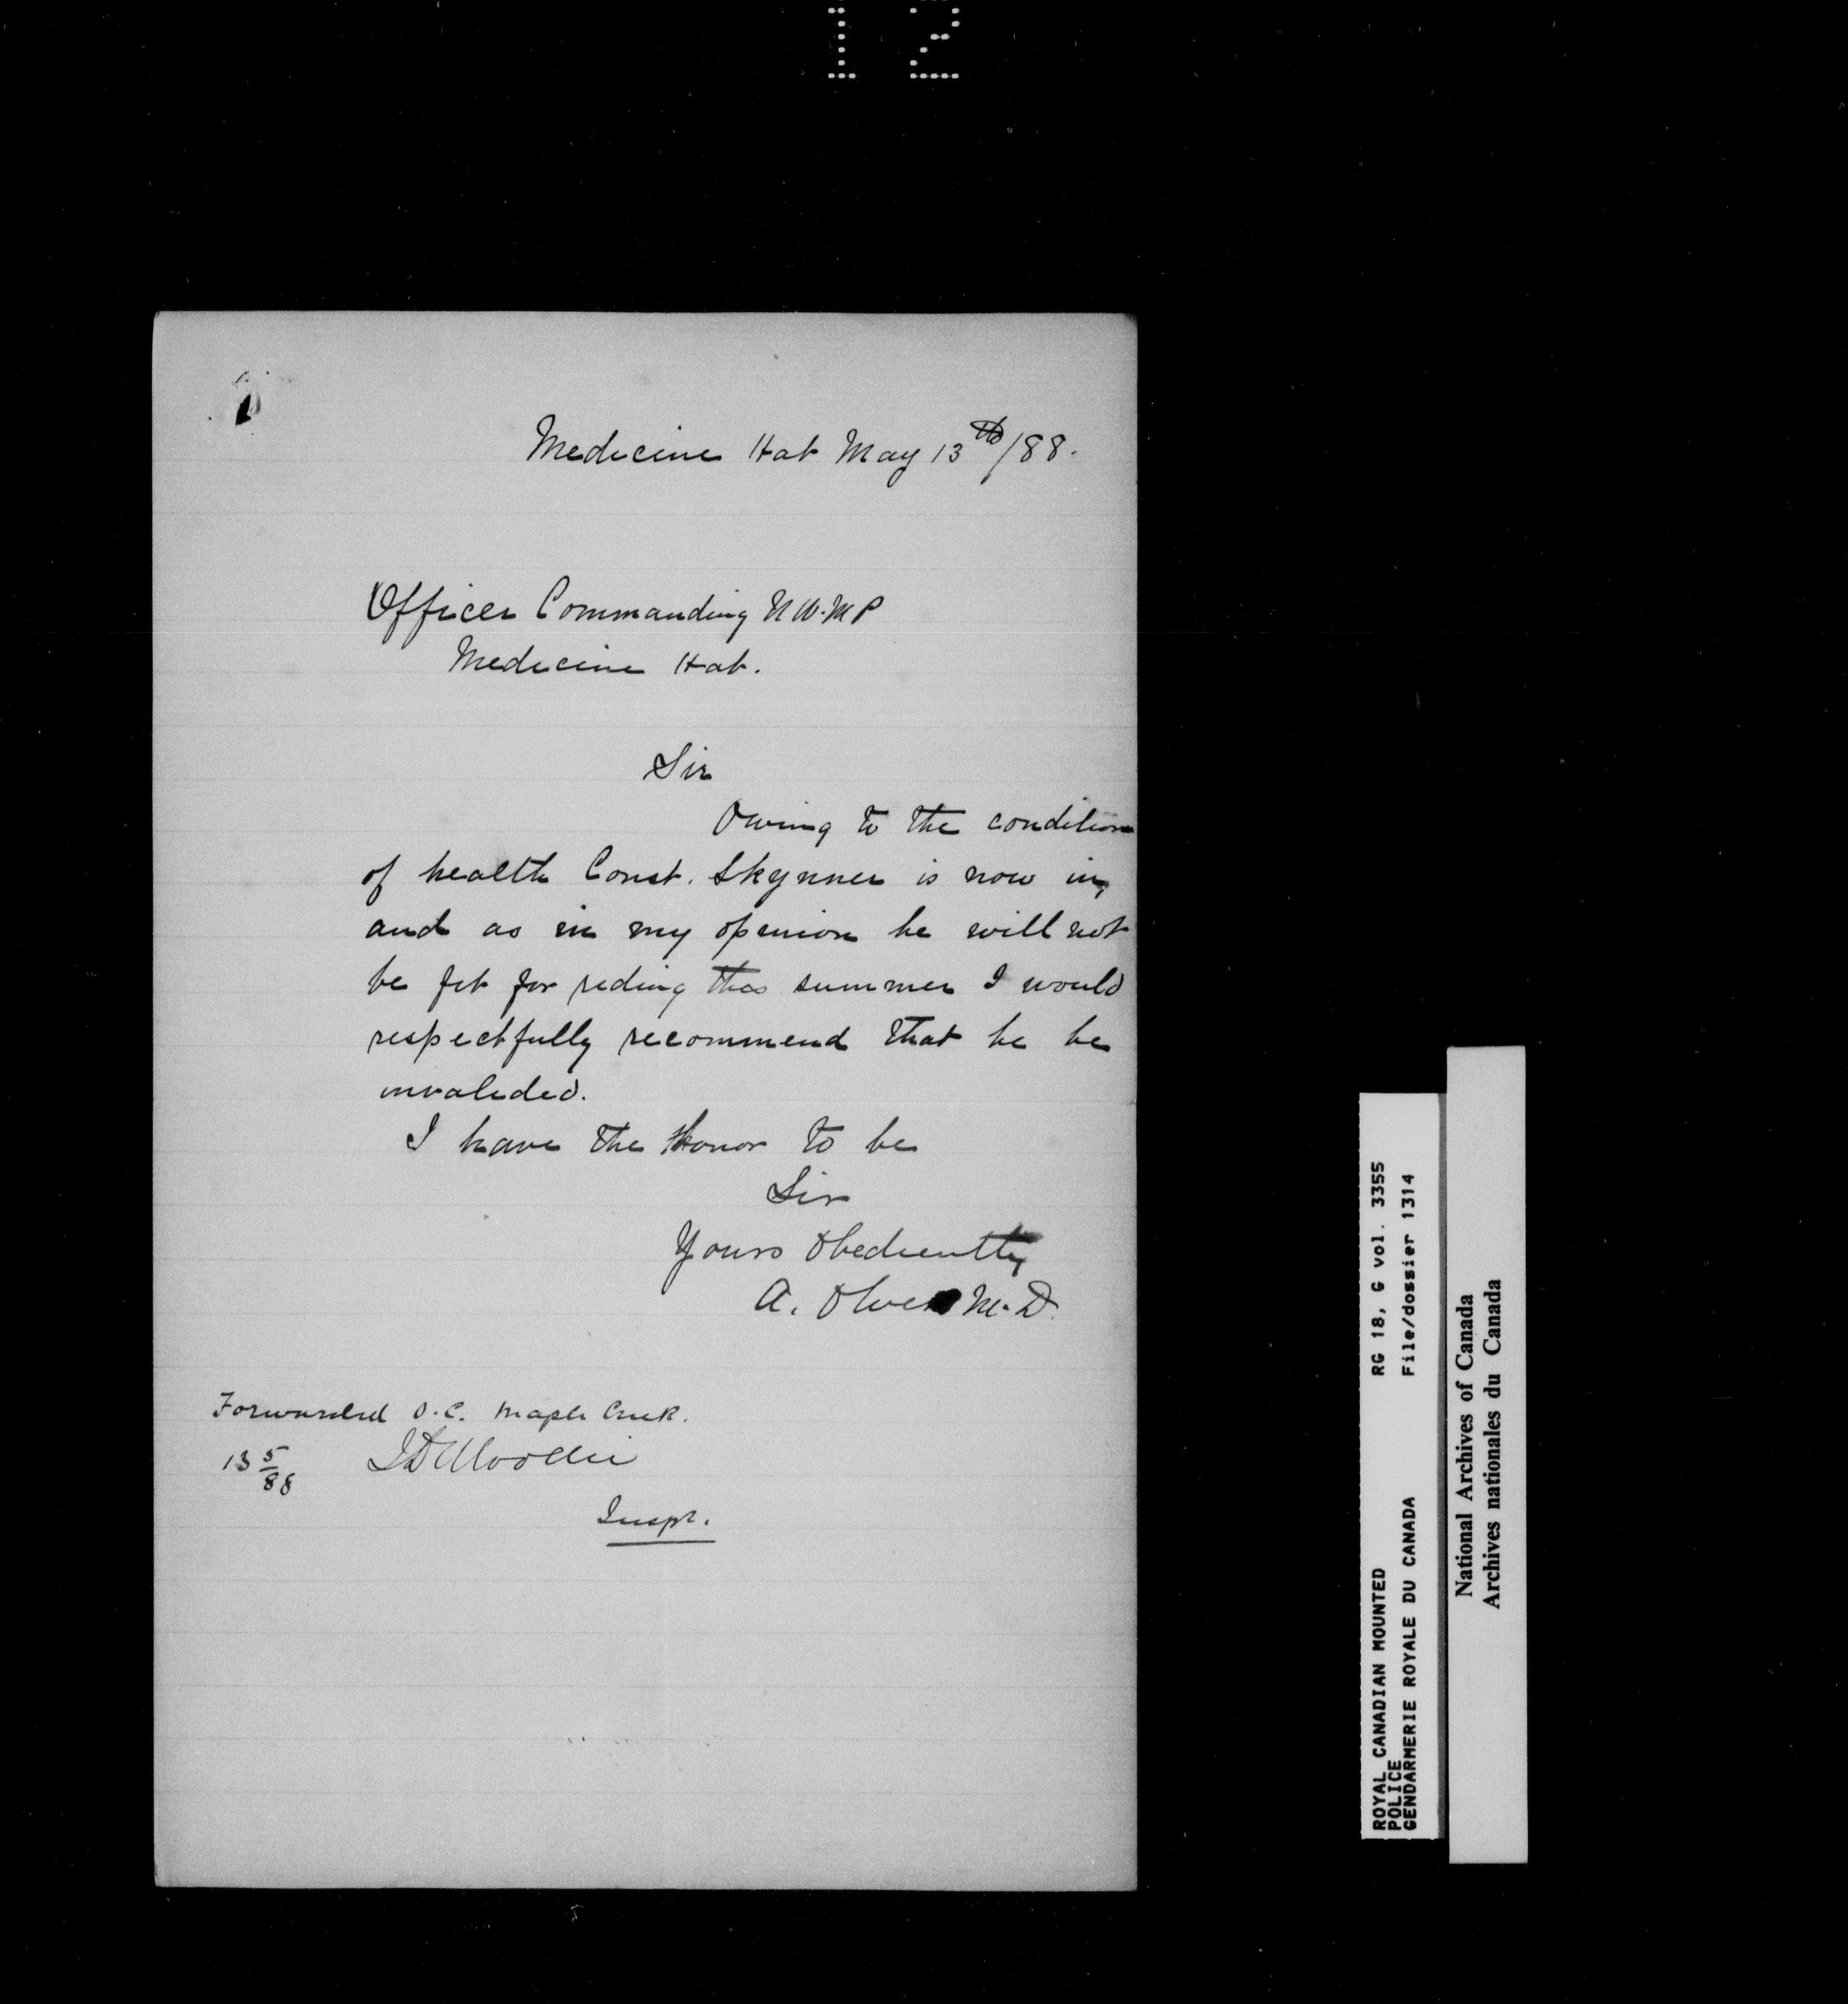 12
Medicine Hat May 13th/88.
Officer Commanding N.W.M.P
Medicine Hat.
Sir
Owing to the condition
of health Const. Skynner is now in,
and as in my opinion he will not
be fit for riding this summer I would
respectfully recommend that he be
invalided.
I have the Honor to be
Sir
Yours Obediently
A. Olver M.D.
Forwarded O.C. Maple Creek.
13 5/88 JD Moodie
Inspr.
ROYAL CANADIAN MOUNTED
POLICE
GENDARMERIE ROYALE DU CANADA
RG 18, G vol. 3355
File/dossier 1314
National Archives of Canada
Archives nationales du Canada